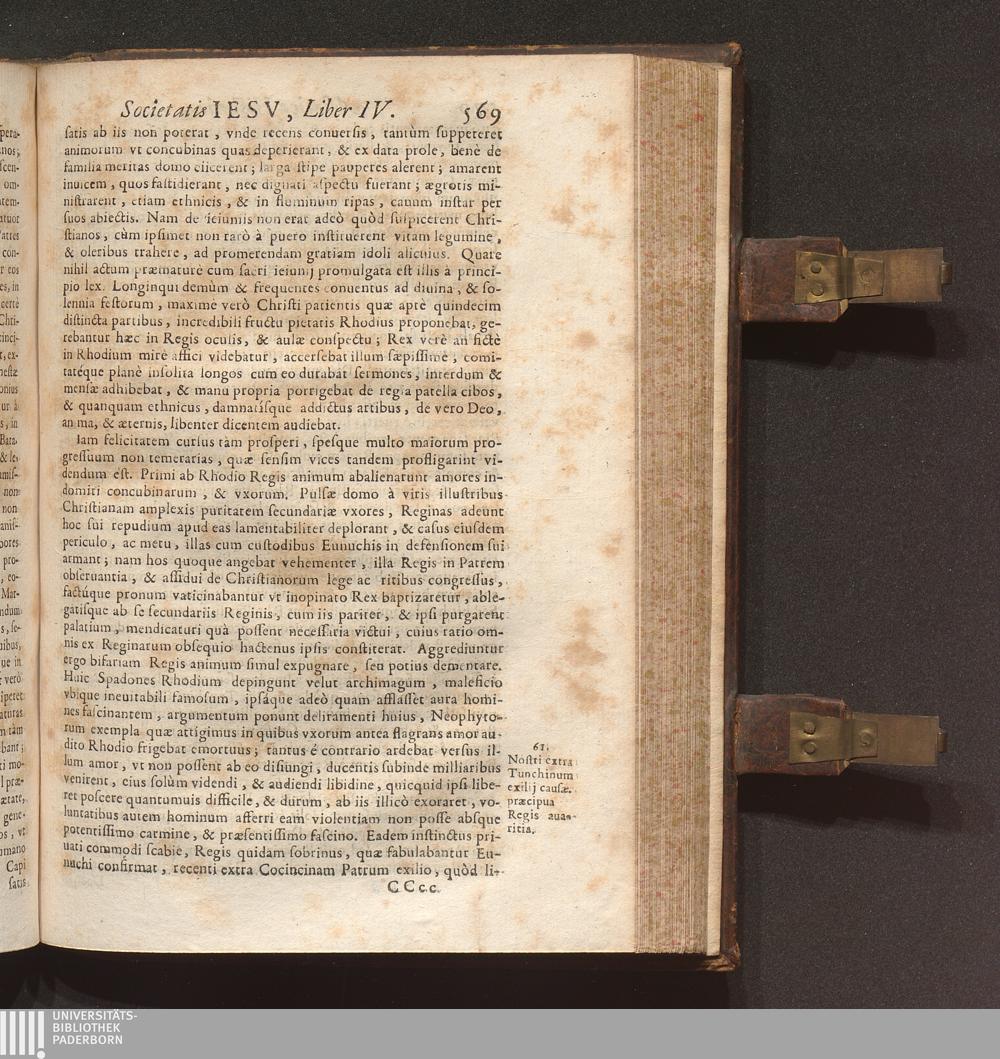 Societatis IESV, Liber IV. 569
satis ab iis non poterat, vnde recens conuersis, tantùm suppeteret
animorum vt concubinas quas deperierant, & ex data prole, benè de
familia meritas domo eiicerent; larga stipe pauperes alerent; amarent
inuicem, quos fastidierant, nec dignati aspectu fuerant; ægrotis mi-
nistrarent, etiam ethnicis, & in fluminum ripas, canum instar per
suos abiectis. Nam de ieiuniis non erat adeò quòd suspicerent Chri-
stianos, cùm ipsimet non rarò à puero instituerent vitam legumine,
& oleribus trahere, ad promerendam gratiam idoli alicuius. Quare
nihil actum præmaturè cum sacri ieiunij promulgata est illis à princi-
pio lex. Longinqui demùm & frequentes conuentus ad diuina, & so-
lennia festorum, maximè verò Christi patientis quæ aptè quindecim
distincta partibus, incredibili fructu pietatis Rhodius proponebat, ge-
rebantur hæc in Regis oculis, & aulæ conspectu; Rex verè an fictè
in Rhodium mirè affici videbatur, accersebat illum sæpissimè, comi-
tatéque planè insolita longos cum eo durabat sermones, interdum &
mensæ adhibebat, & manu propria porrigebat de regia patella cibos,
& quanquam ethnicus, damnatisque addictus artibus, de vero Deo,
anima, & æternis, libenter dicentem audiebat.
Iam felicitatem cursus tàm prosperi, spesque multo maiorum pro-
gressuum non temerarias, quæ sensim vices tandem profligarint vi-
dendum est. Primi ab Rhodio Regis animum abalienarunt amores in-
domiti concubinarum, & vxorum. Pulsæ domo à viris illustribus
Christianam amplexis puritatem secundariæ vxores, Reginas adeunt
hoc sui repudium apud eas lamentabiliter deplorant, & casus eiusdem
periculo, ac metu, illas cum custodibus Eunuchis in defensionem sui
armant; nam hos quoque angebat vehementer, illa Regis in Patrem
obseruantia, & assidui de Christianorum lege ac ritibus congressus,
factúque pronum vaticinabantur vt inopinato Rex baptizaretur, able-
gatisque ab se secundariis Reginis, cum iis pariter, & ipsi purgarent
palatium, mendicaturi quà possent necessaria victui, cuius ratio om-
nis ex Reginarum obsequio hactenus ipsis constiterat. Aggrediuntur
ergo bifariam Regis animum simul expugnare, seu potius dementare.
Huic Spadones Rhodium depingunt velut archimagum, maleficio
vbique ineuitabili famosum, ipsáque adeò quam afflasset aura homi-
nes fascinantem, argumentum ponunt deliramenti huius, Neophyto-
rum exempla quæ attigimus in quibus vxorum antea flagrans amor au-
dito Rhodio frigebat emortuus; tantus é contrario ardebat versus il-
lum amor, vt non possent ab eo disiungi, ducentis subinde milliaribus
venirent, eius solùm videndi, & audiendi libidine, quicquid ipsi libe-
ret poscere quantumuis difficile, & durum, ab iis illicò exoraret, vo-
luntatibus autem hominum afferri eam violentiam non posse absque
potentissimo carmine, & præsentissimo fascino. Eadem instinctus pri-
uati commodi scabie, Regis quidam sobrinus, quæ fabulabantur Eu-
nuchi confirmat, recenti extra Cocincinam Patrum exilio, quòd li-
CCcc
61.
Nostri extra
Tunchinum
exilij causæ.
præcipua
Regis aua-
ritia.
UNIVERSITÄTS-
BIBLIOTHEK
PADERBORN